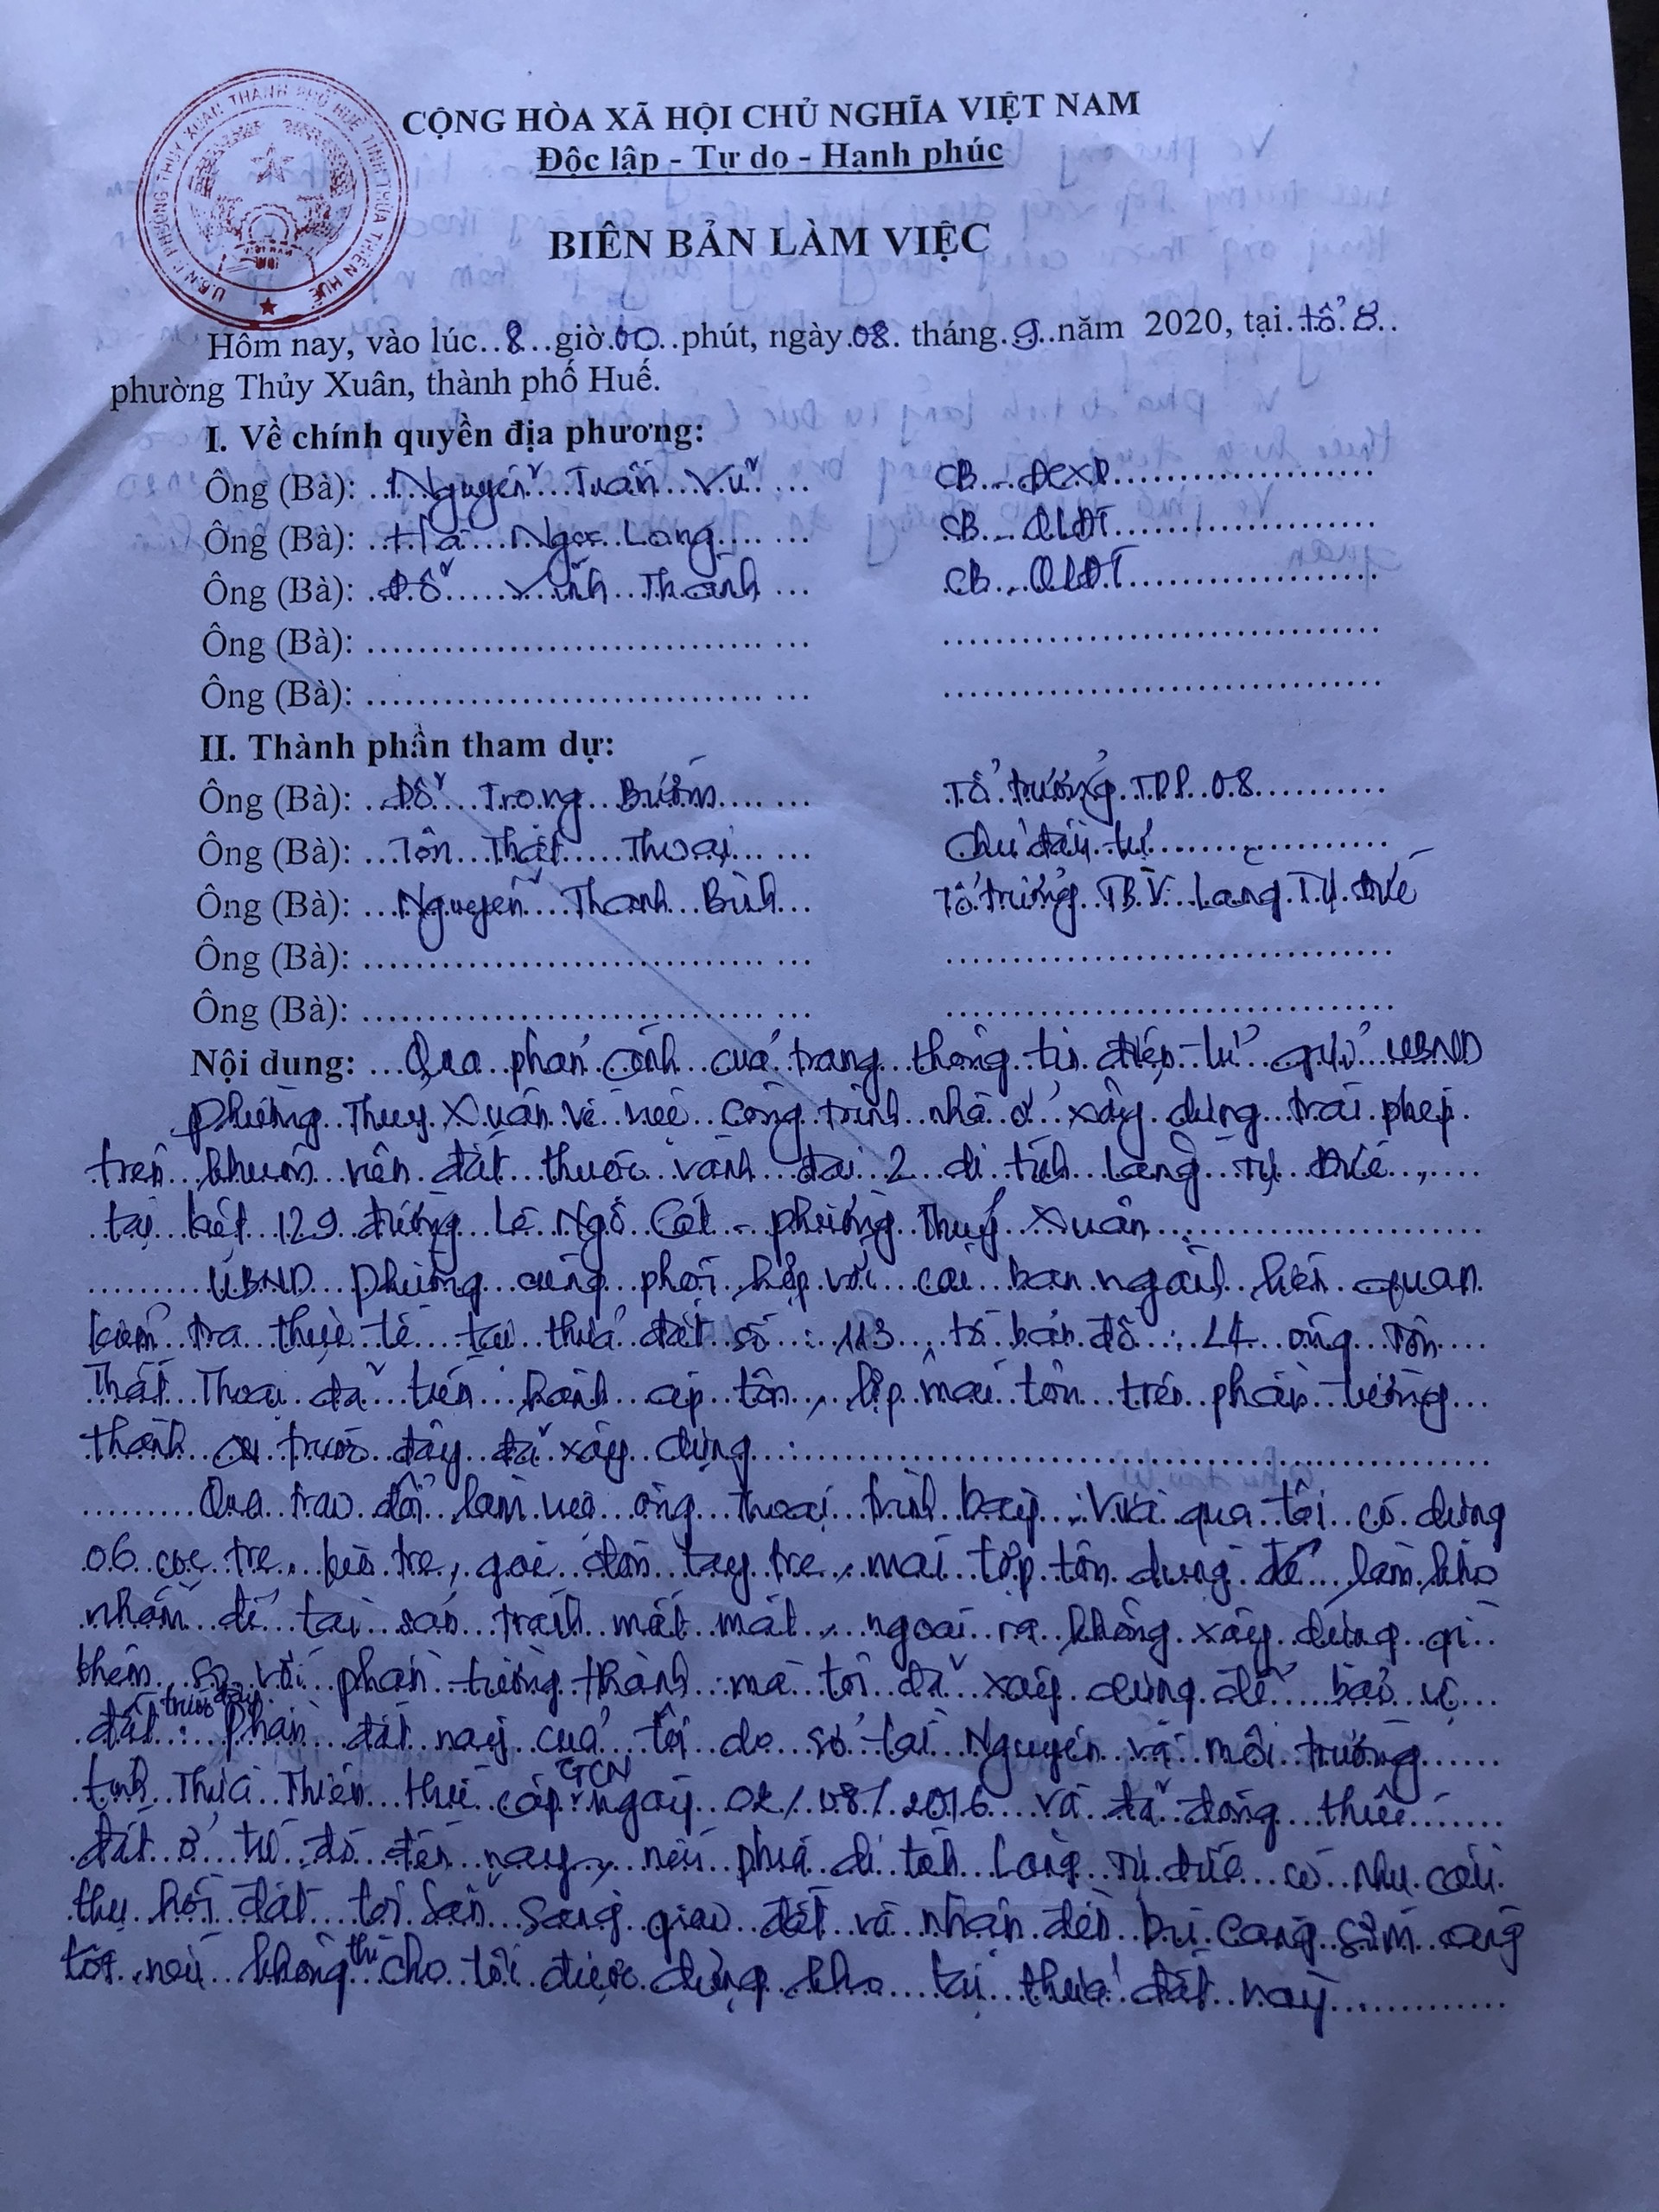 U.B.N.D PHƯỜNG THỦY XUÂN THÀNH PHỐ HUẾ TỈNH THỪA THIÊN HUẾ
CỘNG HÒA XÃ HỘI CHỦ NGHĨA VIỆT NAM
Độc lập - Tự do - Hạnh phúc
BIÊN BẢN LÀM VIỆC
Hôm nay, vào lúc 8 giờ 00 phút, ngày 08 tháng 9 năm 2020, tại tổ 8
phường Thủy Xuân, thành phố Huế.
I. Về chính quyền địa phương:
Ông (Bà): Nguyễn Tuấn Vũ CB - ĐCXD
Ông (Bà): Hà Ngọc Long CB - QLĐT
Ông (Bà): Đỗ Vĩnh Thành CB - QLĐT
Ông (Bà):
Ông (Bà):
II. Thành phần tham dự:
Ông (Bà): Đỗ Trọng Bướm Tổ trưởng TDP 08
Ông (Bà): Tôn Thất Thoại Chủ đầu tư
Ông (Bà): Nguyễn Thanh Bình Tổ trưởng TBV Lăng Tự Đức
Ông (Bà):
Ông (Bà):
Nội dung: Qua phản ánh của trang thông tin điện tử UBND
phường Thủy Xuân về việc công trình nhà ở xây dựng trái phép
trên khuôn viên đất thuộc vành đai 2 di tích Lăng Tự Đức,
tại kiệt 129 đường Lê Ngô Cát - phường Thủy Xuân.
UBND phường cùng phối hợp với các ban ngành liên quan
kiểm tra thực tế tại thửa đất số: 113, tờ bản đồ: 24 ông Tôn
Thất Thoại đã tiến hành ốp tôn, lợp mái tôn trên phần tường
thành cũ trước đây đã xây dựng.
Qua trao đổi làm việc ông Thoại trình bày: Vừa qua tôi có dựng
06 cọc tre, kèo tre, đòn tay tre, mái lợp tôn dựng để làm kho
nhằm để tài sản tránh mất mát, ngoài ra không xây dựng gì
thêm so với phần tường thành mà tôi đã xây dựng để bảo vệ
đất trước đây. Phần đất này của tôi do sở Tài Nguyên và môi trường
tỉnh Thừa Thiên Huế cấp GCN ngày 02/08/2016 và đã đóng thuế
đất ở từ đó đến nay, nếu phía di tích Lăng Tự Đức có nhu cầu
thu hồi đất tôi sẵn sàng giao đất và nhận đền bù càng sớm càng
tốt, nếu không thì cho tôi được dựng kho tại thửa đất này